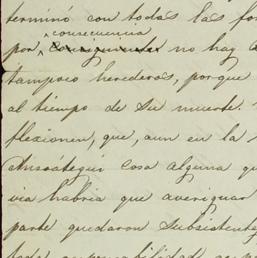 terminó con todas las for
consecuencia
por, consiguiente no hay
tampoco herederos, porque
al tiempo de su muerte.
flexionen, que, aun en la
Anzoátegui cosa alguna qu
via habria que averiguar
parte quedaron subsistente